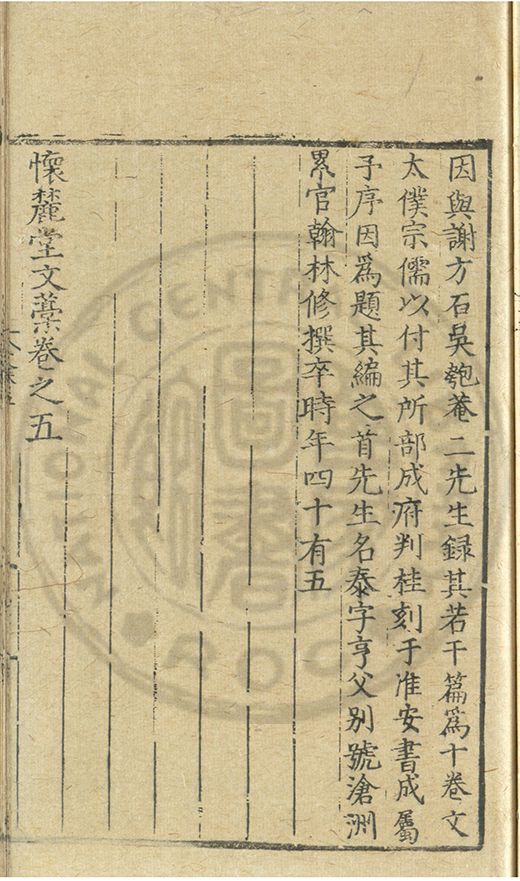 因與謝方石吳匏菴二先生録其若干篇爲十卷文
太僕宗儒以付其所部成府判桂刻于淮安書成屬
予序因爲題其編之首先生名泰字亨父别號滄洲
累官翰林修撰卒時年四十有五
懷麓堂文藁卷之五